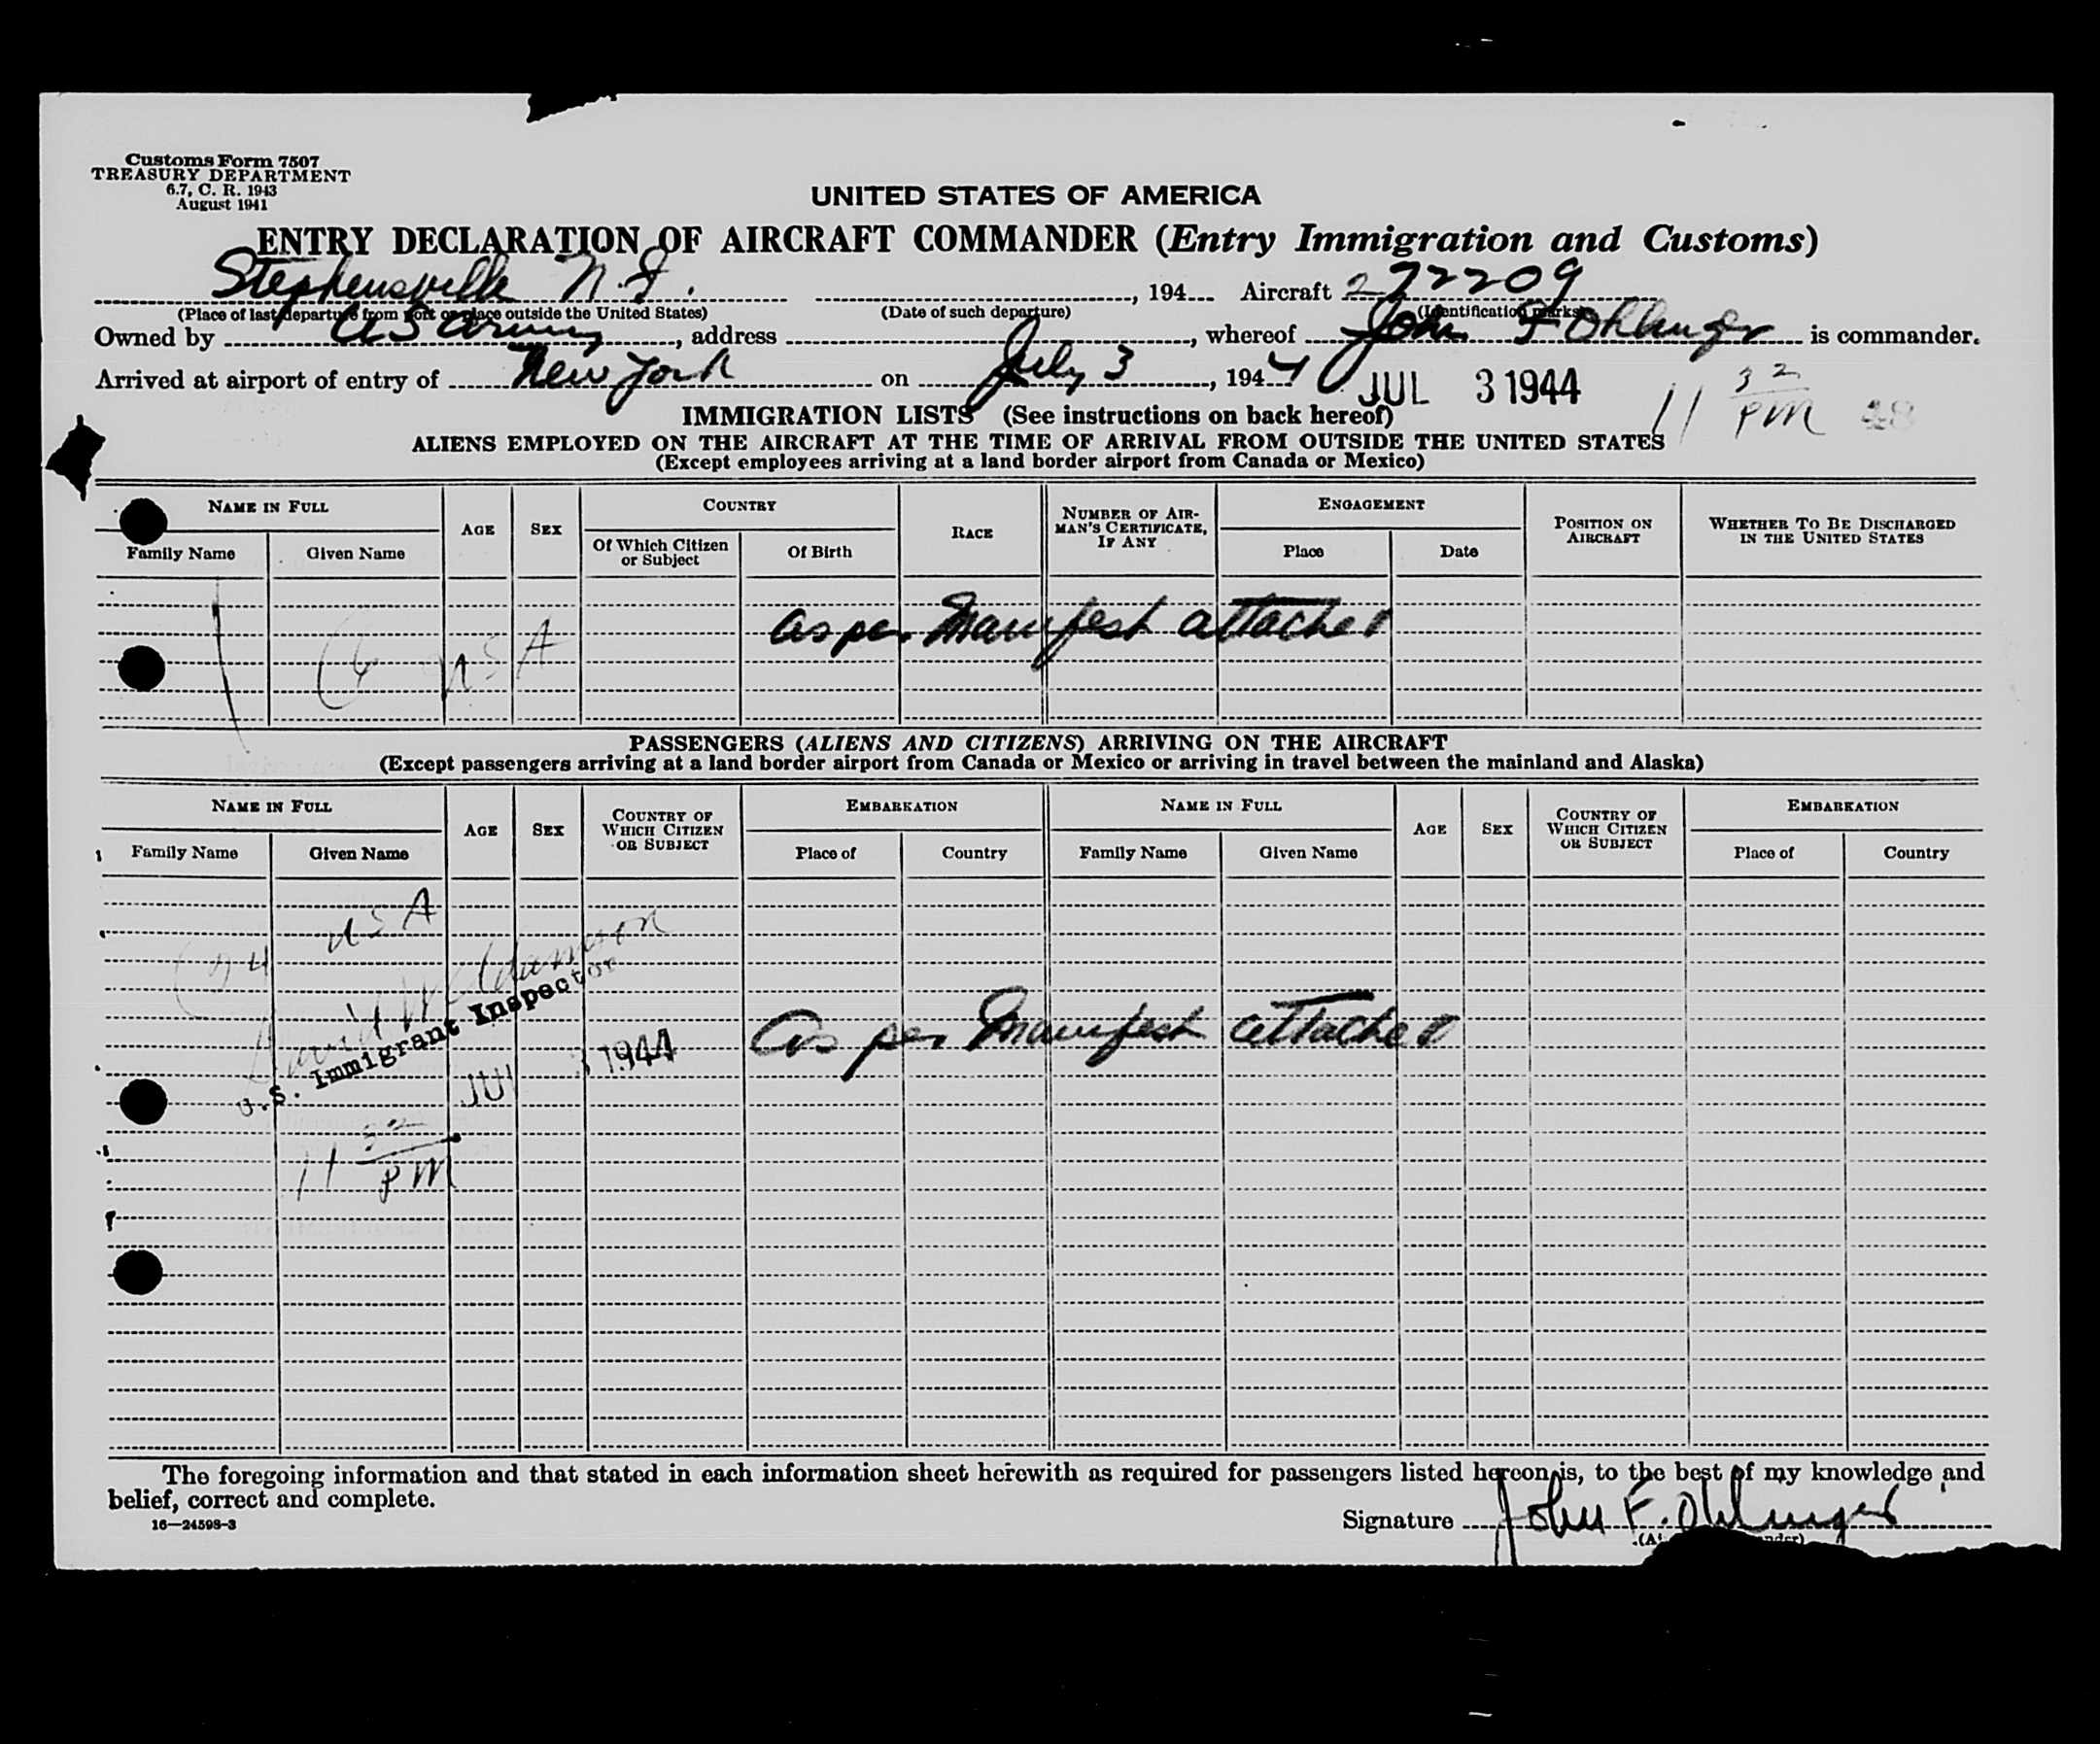 Customs Form 7507
TREASURY DEPARTMENT
6.7, C. R. 1943
August 1941
UNITED STATES OF AMERICA
ENTRY DECLARATION OF AIRCRAFT COMMANDER (Entry Immigration and Customs)
Stephensville N.F. , 194 Aircraft 272209
(Place of last departure from port or place outside the United States) (Date of such departure) (Identification marks)
Owned by US Army , address , whereof John F Ohlinger is commander.
Arrived at airport of entry of New York on July 3 , 1944 JUL 3 1944 11 32 PM 48
IMMIGRATION LISTS (See instructions on back hereof)
ALIENS EMPLOYED ON THE AIRCRAFT AT THE TIME OF ARRIVAL FROM OUTSIDE THE UNITED STATES
(Except employees arriving at a land border airport from Canada or Mexico)
NAME IN FULL AGE SEX COUNTRY RACE NUMBER OF AIRMAN'S CERTIFICATE, IF ANY ENGAGEMENT POSITION ON AIRCRAFT WHETHER TO BE DISCHARGED IN THE UNITED STATES
Family Name Given Name Of Which Citizen or Subject Of Birth Place Date
as per Manifest attached
6 USA
PASSENGERS (ALIENS AND CITIZENS) ARRIVING ON THE AIRCRAFT
(Except passengers arriving at a land border airport from Canada or Mexico or arriving in travel between the mainland and Alaska)
NAME IN FULL AGE SEX COUNTRY OF WHICH CITIZEN OR SUBJECT EMBARKATION NAME IN FULL AGE SEX COUNTRY OF WHICH CITIZEN OR SUBJECT EMBARKATION
Family Name Given Name Place of Country Family Name Given Name Place of Country
USA
David W
U.S. Immigrant Inspector
JUL 3 1944
as per Manifest attached
11 32 PM
The foregoing information and that stated in each information sheet herewith as required for passengers listed hereon is, to the best of my knowledge and
belief, correct and complete.
16—24598-3
Signature John F. Ohlinger